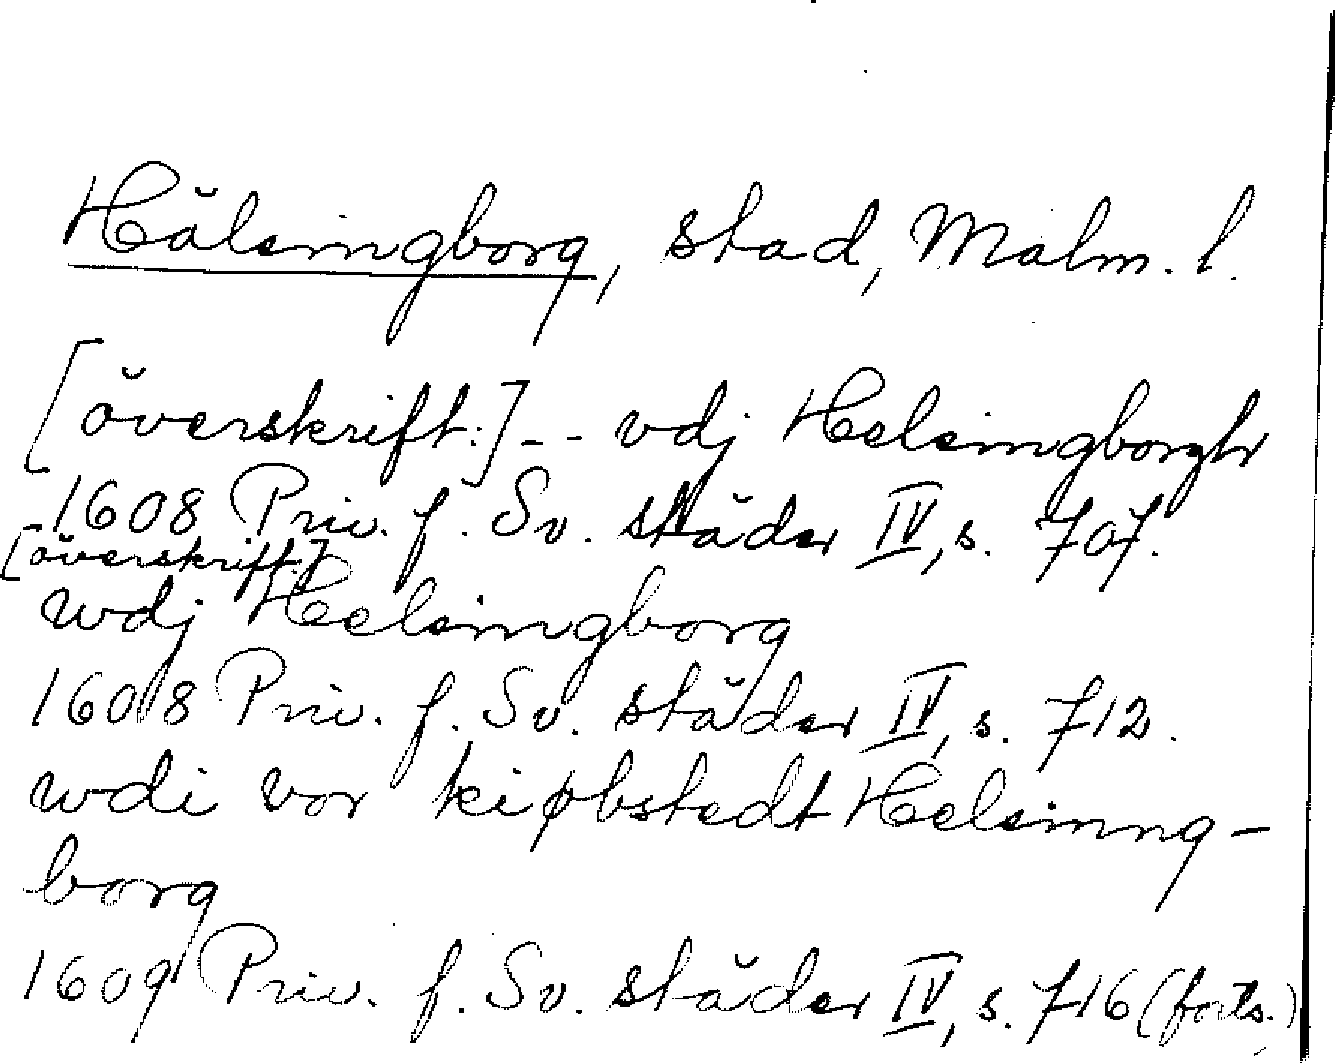 Hälsingborg, stad, Malm. l.
[överskrift:] - - vdj Helsingborgh
1608 Priv. f. Sv. städer IV, s. 707.
[överskrift:]
wdj Helsingborg
1608 Priv. f. Sv. städer IV, s. 712.
wdi vor kiøbstedt Helsinng-
borg
1609 Priv. f. Sv. städer IV, s. 716 (forts.)